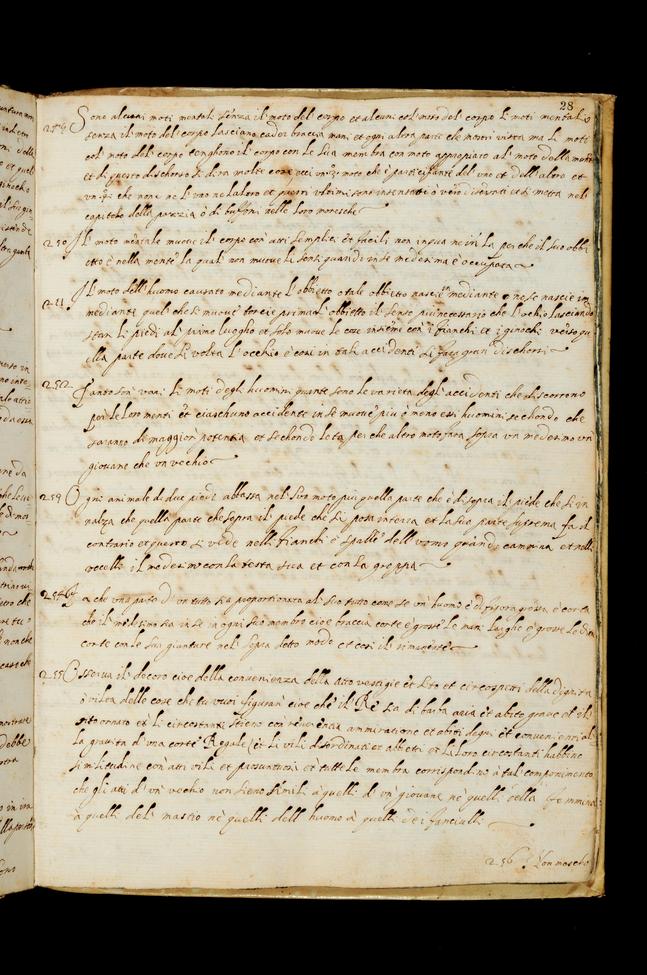 28
Sono alcuni moti mentali senza il moto del corpo et alcuni col moto del corpo li moti mentali
senza il moto del corpo lasciano cader braccia mani et ogni altra parte che mostri vista ma li moti
col moto del corpo tenghono il corpo con le sua membra con moto appropiato al moto della mente
et di questo discorso si dira molte cose ecci un 3º moto che è participante del uno et dell'altro et
un 4º che none ne l'uno ne l'altro et questi ultimi sono insensati ò vero disensati et si metta nel
capitolo della pazzia ò di buffoni nelle loro moresche
250 Il moto mentale muove il corpo con atti semplici et facili non in qua ne in la perche il suo obbi
etto è nella mente la qual non muove li sensi quando in se medesima è occupata
Il moto dell'huomo causato mediante l'obbietto o tale obbietto nascie in mediante
mediante quel che si muove torcie prima all'obbietto il senso piu necessario che l'ochio lasciando
stare li piedi al primo luogho et solo muove le coscie insieme con i fianchi et i ginochi verso qu
ella parte dove si volta l'occhio è cosi in tali accidenti si fara gran discorsi
252 Tanto son varii li moti degl'huomini quante sono le varieta degl'accidenti che discorrono
per le loro menti et ciaschuno accidente in se muove piu è meno essi huomini sechondo che
saranno di maggior potentia et sechondo l'eta perche altro moto fara sopra un medesimo un
giovane che un vechio
253 Ogni animale di due piedi abbassa nel suo moto piu quella parte che è di sopra il piede che si in
nalza che quella parte che sopra il piede che si posa in terra et la sua parte suprema fa il
contrario et questo si vede nelli fianchi è spalle dell'uomo quando camina et nelli
uccelli il medesimo con la testa sua et con la groppa
254 Fa che una parte d'un tutto sia proportionata al suo tutto come se un huomo è di figura grossa è corta
che il medesimo sia in se in ogni suo membro cioe braccia corte è grosse le mani larghe è grosse le dita
corte con le sua giunture nel sopra detto modo et cosi il rimanente
255 Osserva il decoro cioe della convenienza dell'atto vestigie et sito et circospetti della dignita
ò vilta delle cose che tu vuoi figurare cioe che il Re sia di barba aria et abito grave et il
sito ornato et li circostanti stieno con reverencia ammiratione et abiti degni et convenienti al
la gravita d'una corte Regale et li vili disordinati et abbietti et li loro circostanti habbino
similitudine con atti vili et presuntuosi et tutte le membra corrispondino à tal componimento
che gli atti d'un vechio non sieno simili à quelli d'un giovane ne quelli della femmina
à quelli del mastio ne quelli dell'huomo à quelli dei fanciulli
256 Non mischi